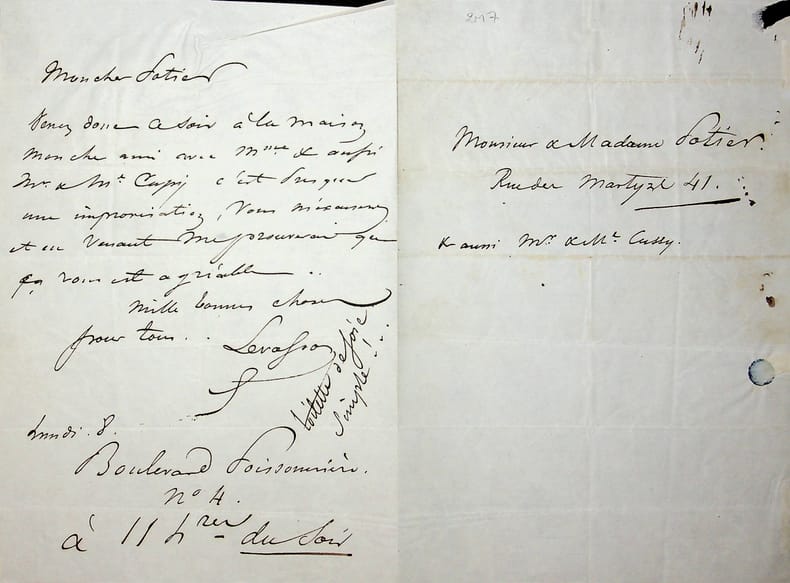 Mon cher Potier
Venez donc ce soir à la maison
mon che ami avec Mme & aussi
Mr. & Me Cussy c'est presque
une improvisation, vous m'excuserez
et en venant me prouverai que
ça vous est agréable ..
mille bonnes choses
pour tous ..
Levassor
toilette de soie
simple! ...
Lundi 8.
Boulevard Poissonnière.
no 4.
à 11 hres du soir
2117
Monsieur & Madame Potier.
Rue des Martyrs 41.
& aussi Mr & Me Cussy.